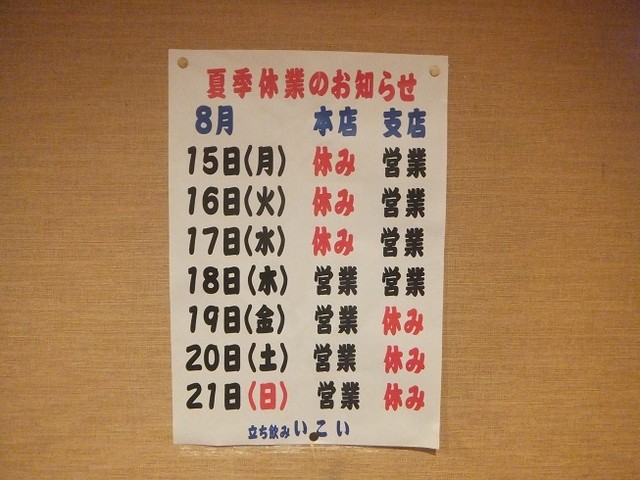 夏季休業のお知らせ
8月 本店 支店
15日(月) 休み 営業
16日(火) 休み 営業
17日(水) 休み 営業
18日(木) 営業 営業
19日(金) 営業 休み
20日(土) 営業 休み
21日(日) 営業 休み
立ち飲み いこい